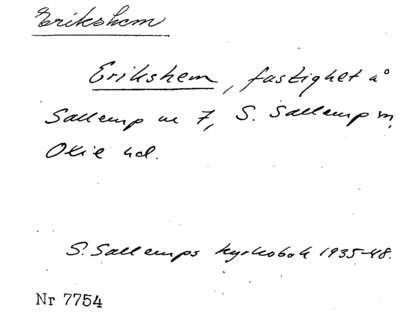 Erikshem
Erikshem, fastighet å
Sallerup nr 7, S. Sallerup sn,
Oxie hd.
S. Sallerups kyrkobok 1935-48.
Nr 7754